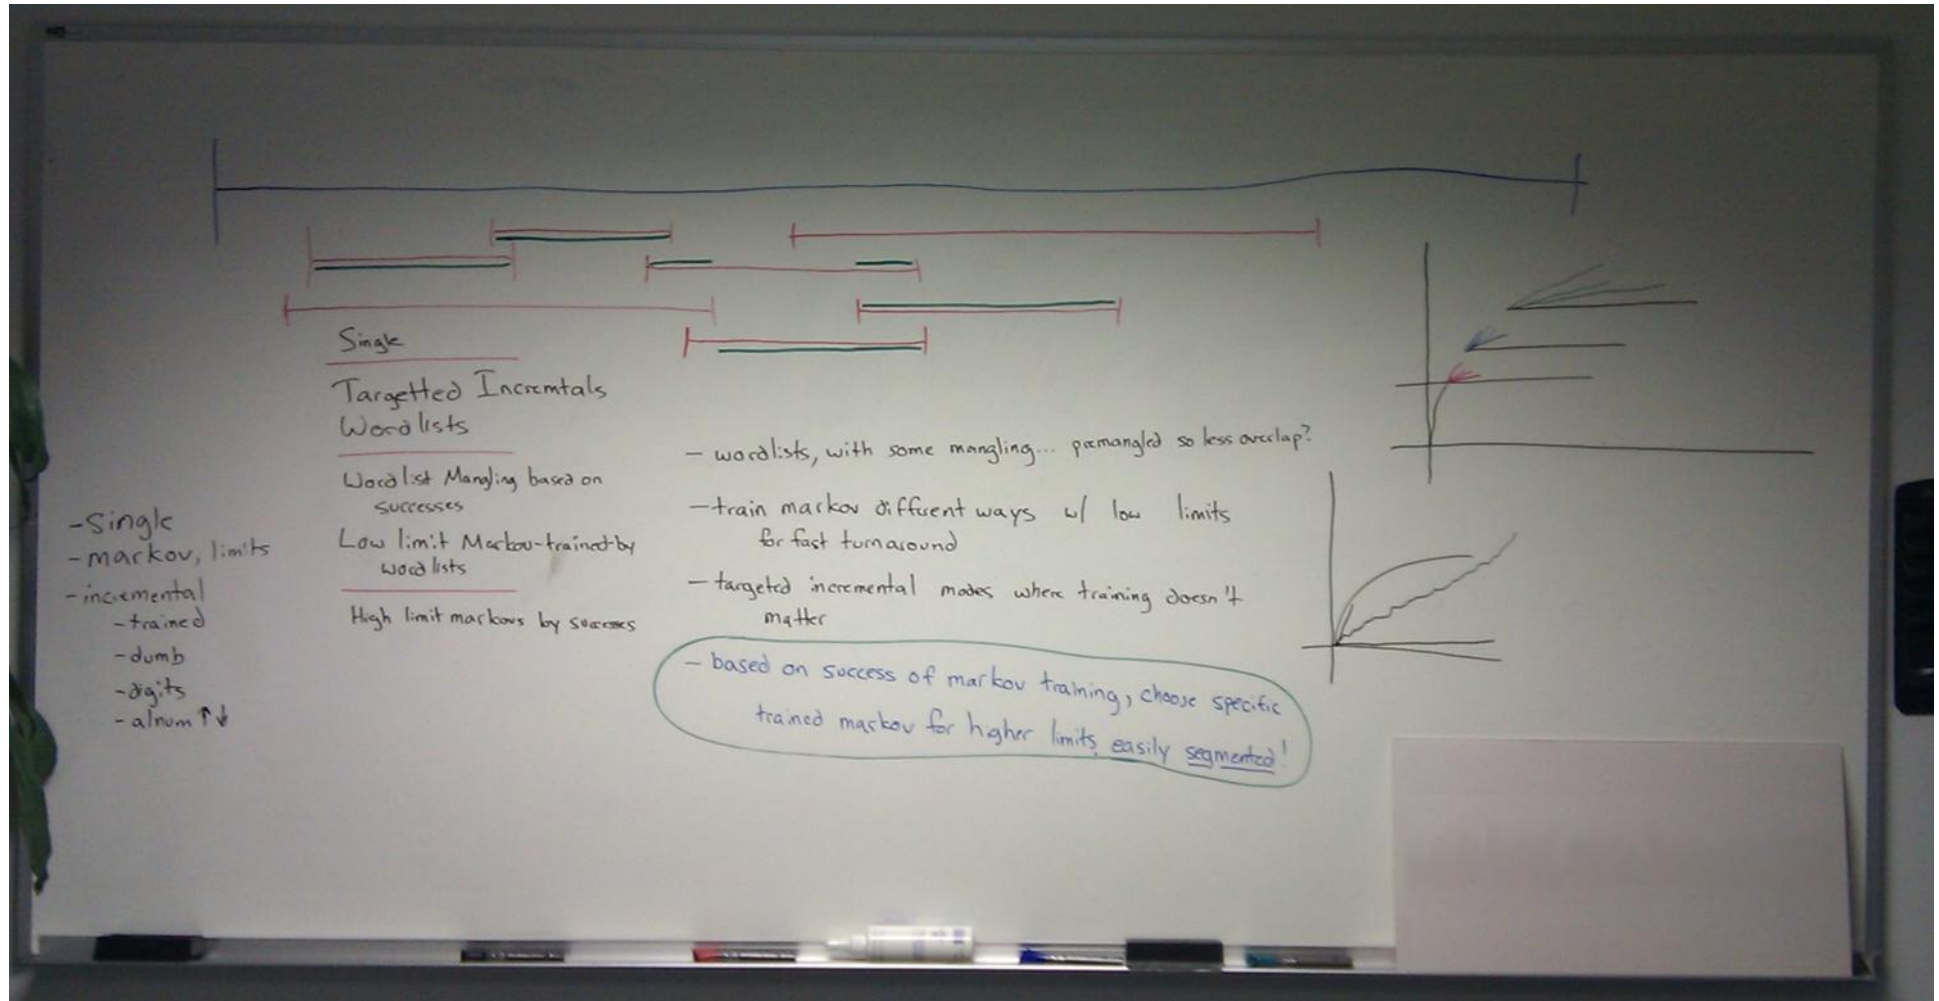 - Single
- markov, limits
- incremental
- trained
- dumb
- digits
- alnum ↑↓
Single
Targetted Incremtals
Wordlists
Wordlist Mangling based on
successes
Low limit Markov-trained-by
wordlists
High limit markovs by successes
- wordlists, with some mangling... premangled so less overlap?
- train markov diffrent ways w/ low limits
for fast turnaround
- targeted incremental modes where training doesn't
matter
- based on success of markov training, choose specific
trained markov for higher limits, easily segmented!